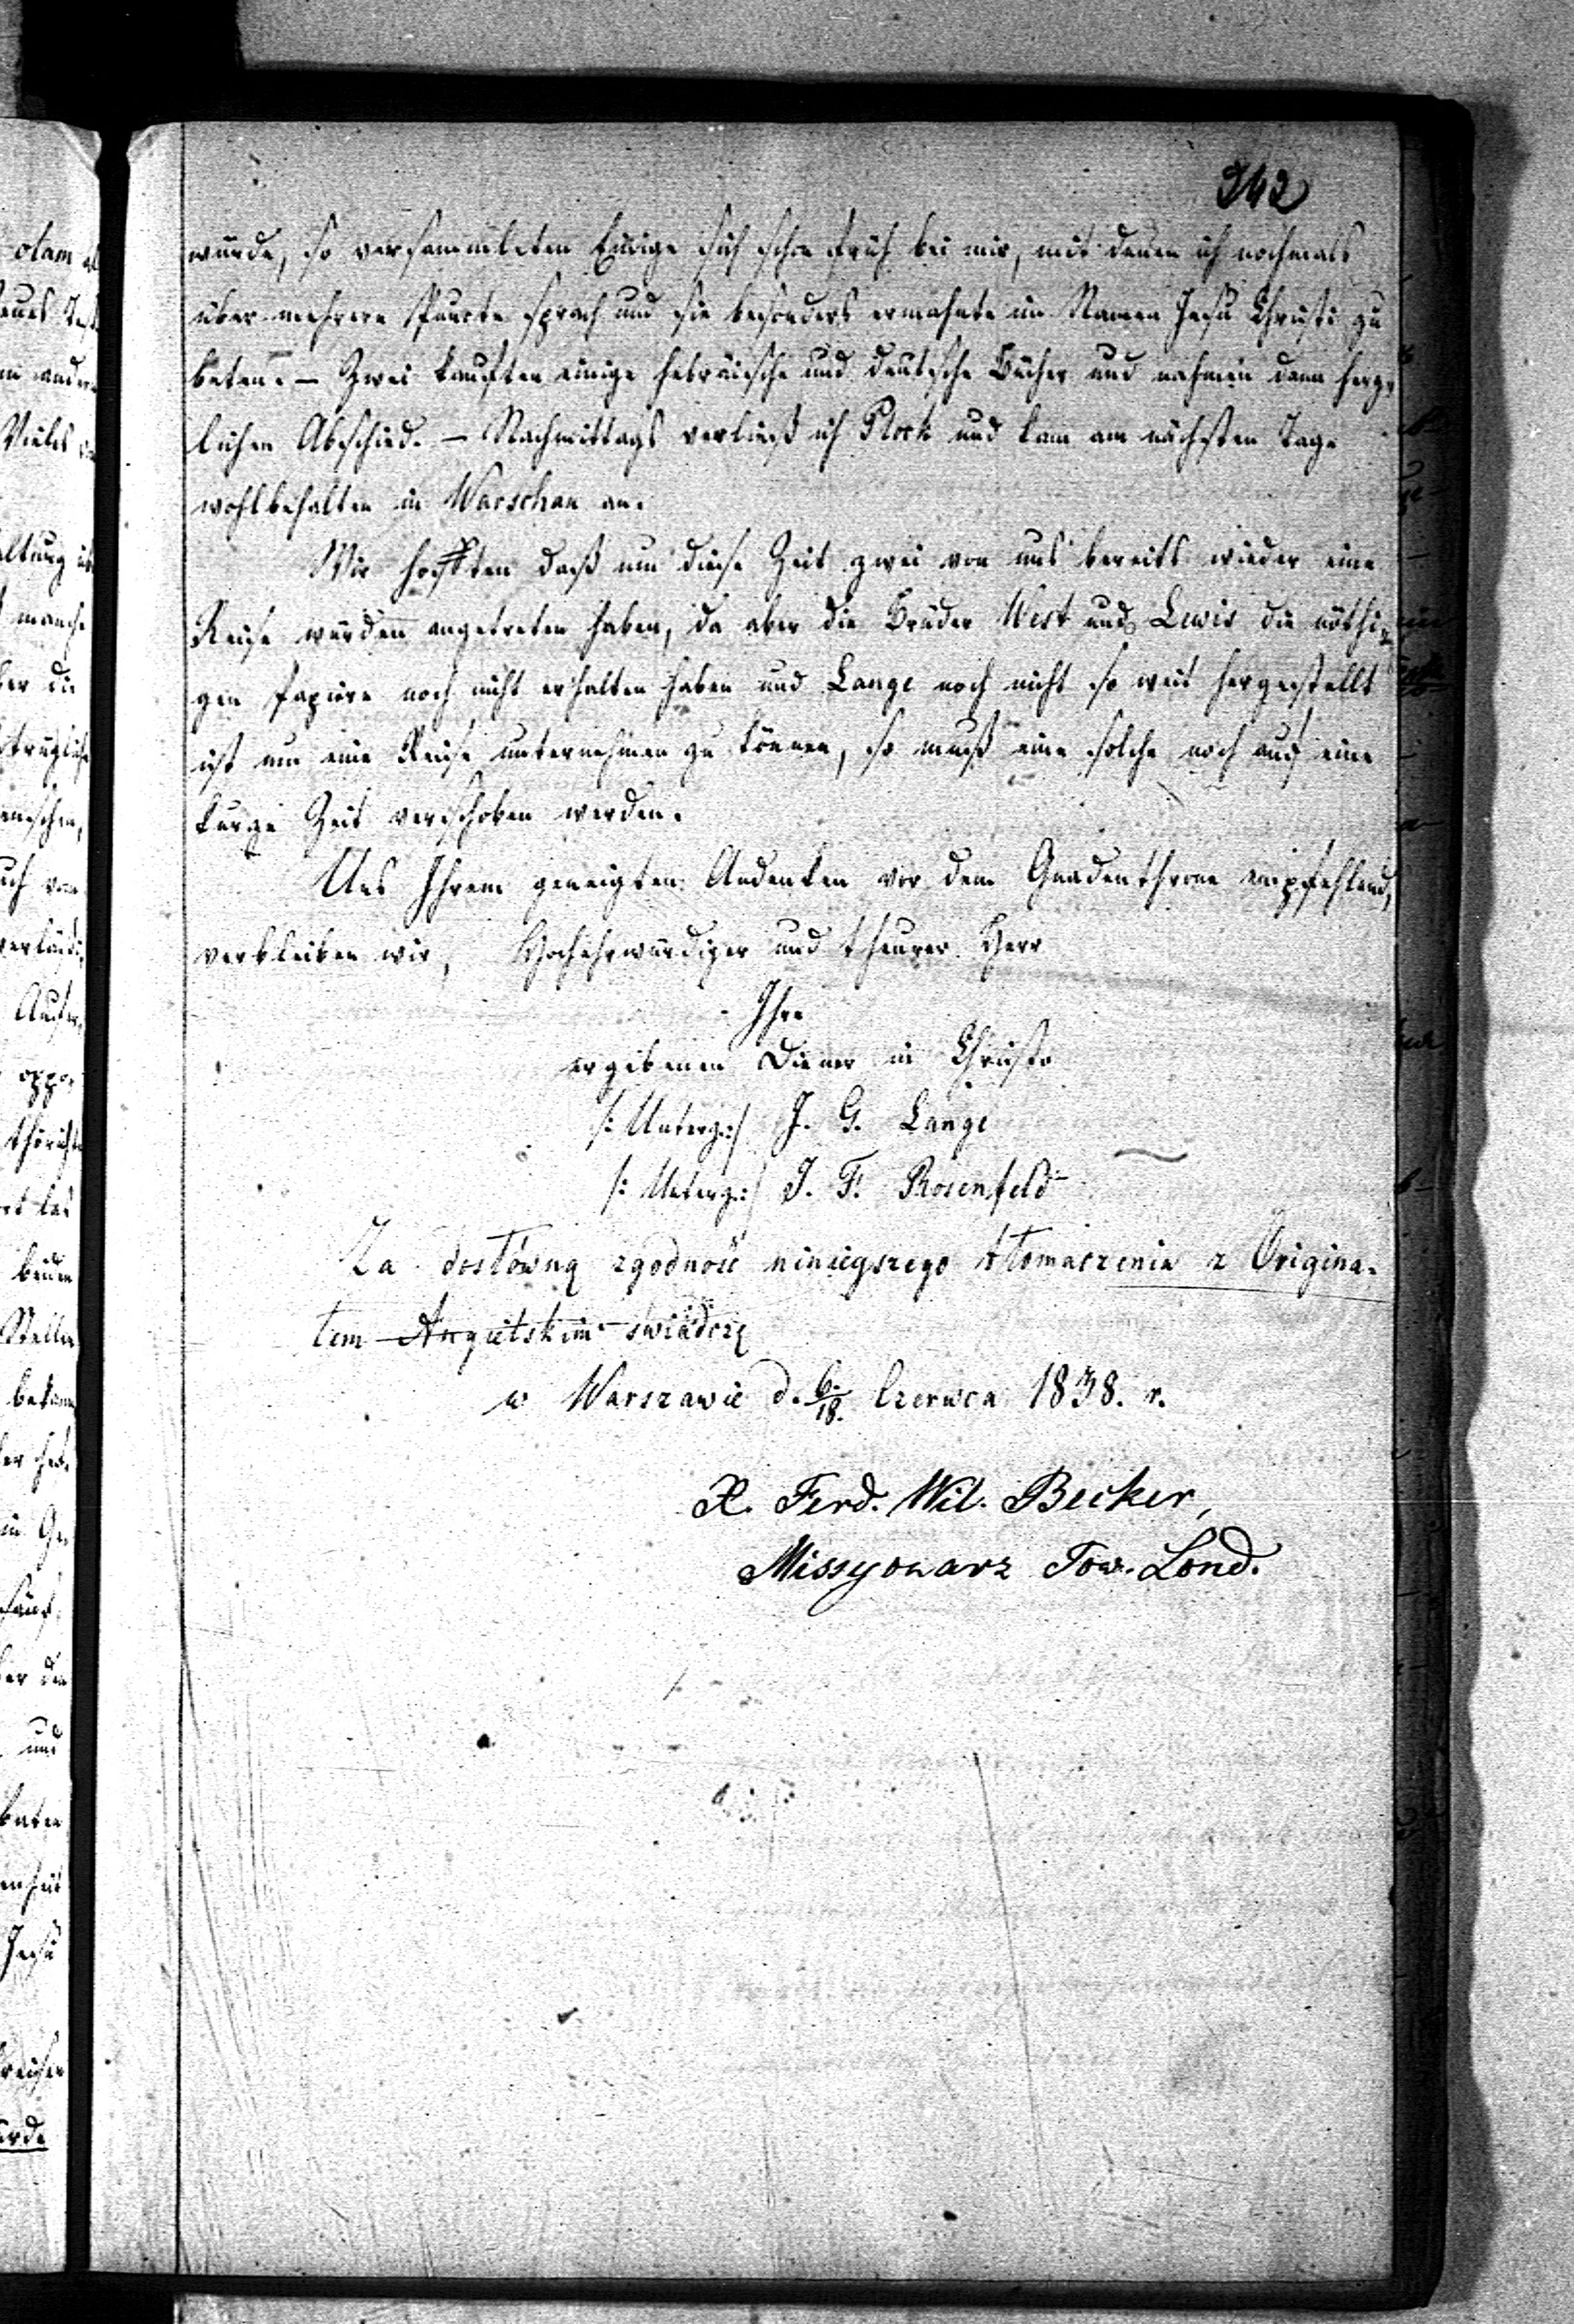 342
wurde, so versammleten Einige sich schon früh bei mir, mit denen ich nochmals
über mehrere Puncte sprach und sie besonders ermahnte im Namen Jesu Christi zu
beten. — Zwei kauften einige hebräische und deutsche Bücher und nahmen dann herz-
lichen Abschied. — Nachmittags verließ ich Plock und kam am nächsten Tage
wohlbehalten in Warschau an.
Wir hofften daß um diese Zeit zwei von uns bereits wieder eine
Reise würden angetreten haben, da aber die Brüder West und Lewis die nöthi-
gen Papiere noch nicht erhalten haben und Lange noch nicht so weit hergestellt
ist um eine Reise unternehmen zu können, so muß eine solche noch auf eine
kurze Zeit verschoben werden.
Uns Ihrem geneigten Andenken vor dem Gnadenthrone empfehlend,
verbleiben wir, Hochehrwürdiger und theurer Herr
Ihre
ergebenen Diener in Christo
/: Unterz :/ J. G. Lange
/: Unterz :/ J. F. Rosenfeld
Za dosłówną zgodność ninieyszego tłomaczenia z Origina-
łem Angielskim swiadczę
w Warszawie d. 6/18. Czerwca 1838. r.
X. Ferd. Wil. Becker,
Missyonarz Tow. Lond.